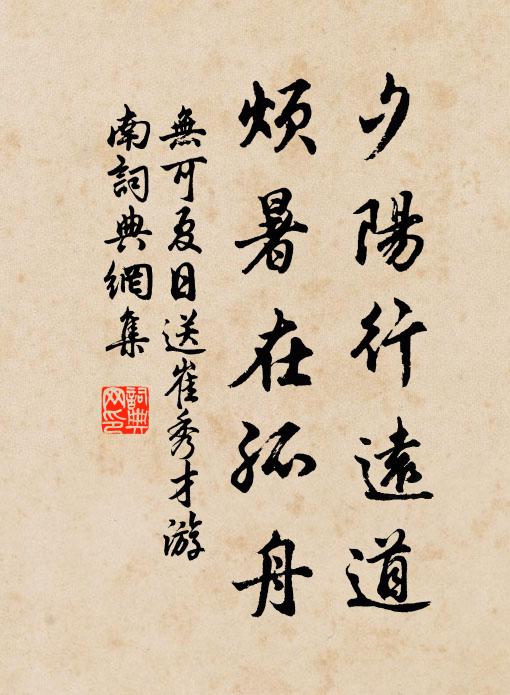 夕陽行遠道
煩暑在孤舟
無可夏日送崔秀才游
南詞典網集
詞典
网印